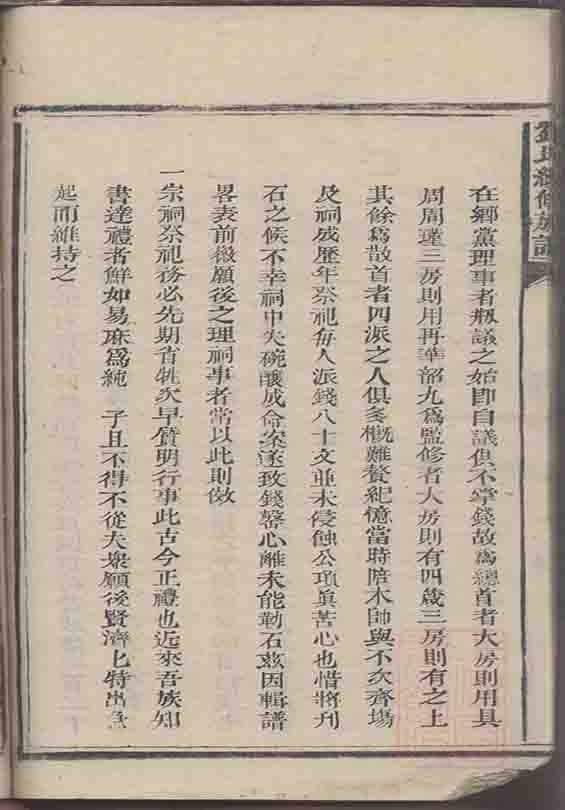 在鄉黨理事者甁議之始即自議俱不掌錢故為總首者大房則用具
周周瑾三房則用再華韶九為監修者大房則有四歲三房則有之上
其餘為散首者四派之人俱多概難贅紀憶當時陪木師與不次齊塲
及祠成歷年祭祀每人派錢八十文並未侵蝕公項眞苦心也惜將刋
石之候不幸祠中失碗釀成命案遂致錢罄心離未能勒石玆因輯譜
畧表前徽願後之理祠事者常以此則傚
一宗祠祭祀務必先期省牲次早質明行事此古今正禮也近來吾族知
書達禮者鮮如易麻為純 子且不得不從夫衆願後賢濟匕特出亟
起而維持之